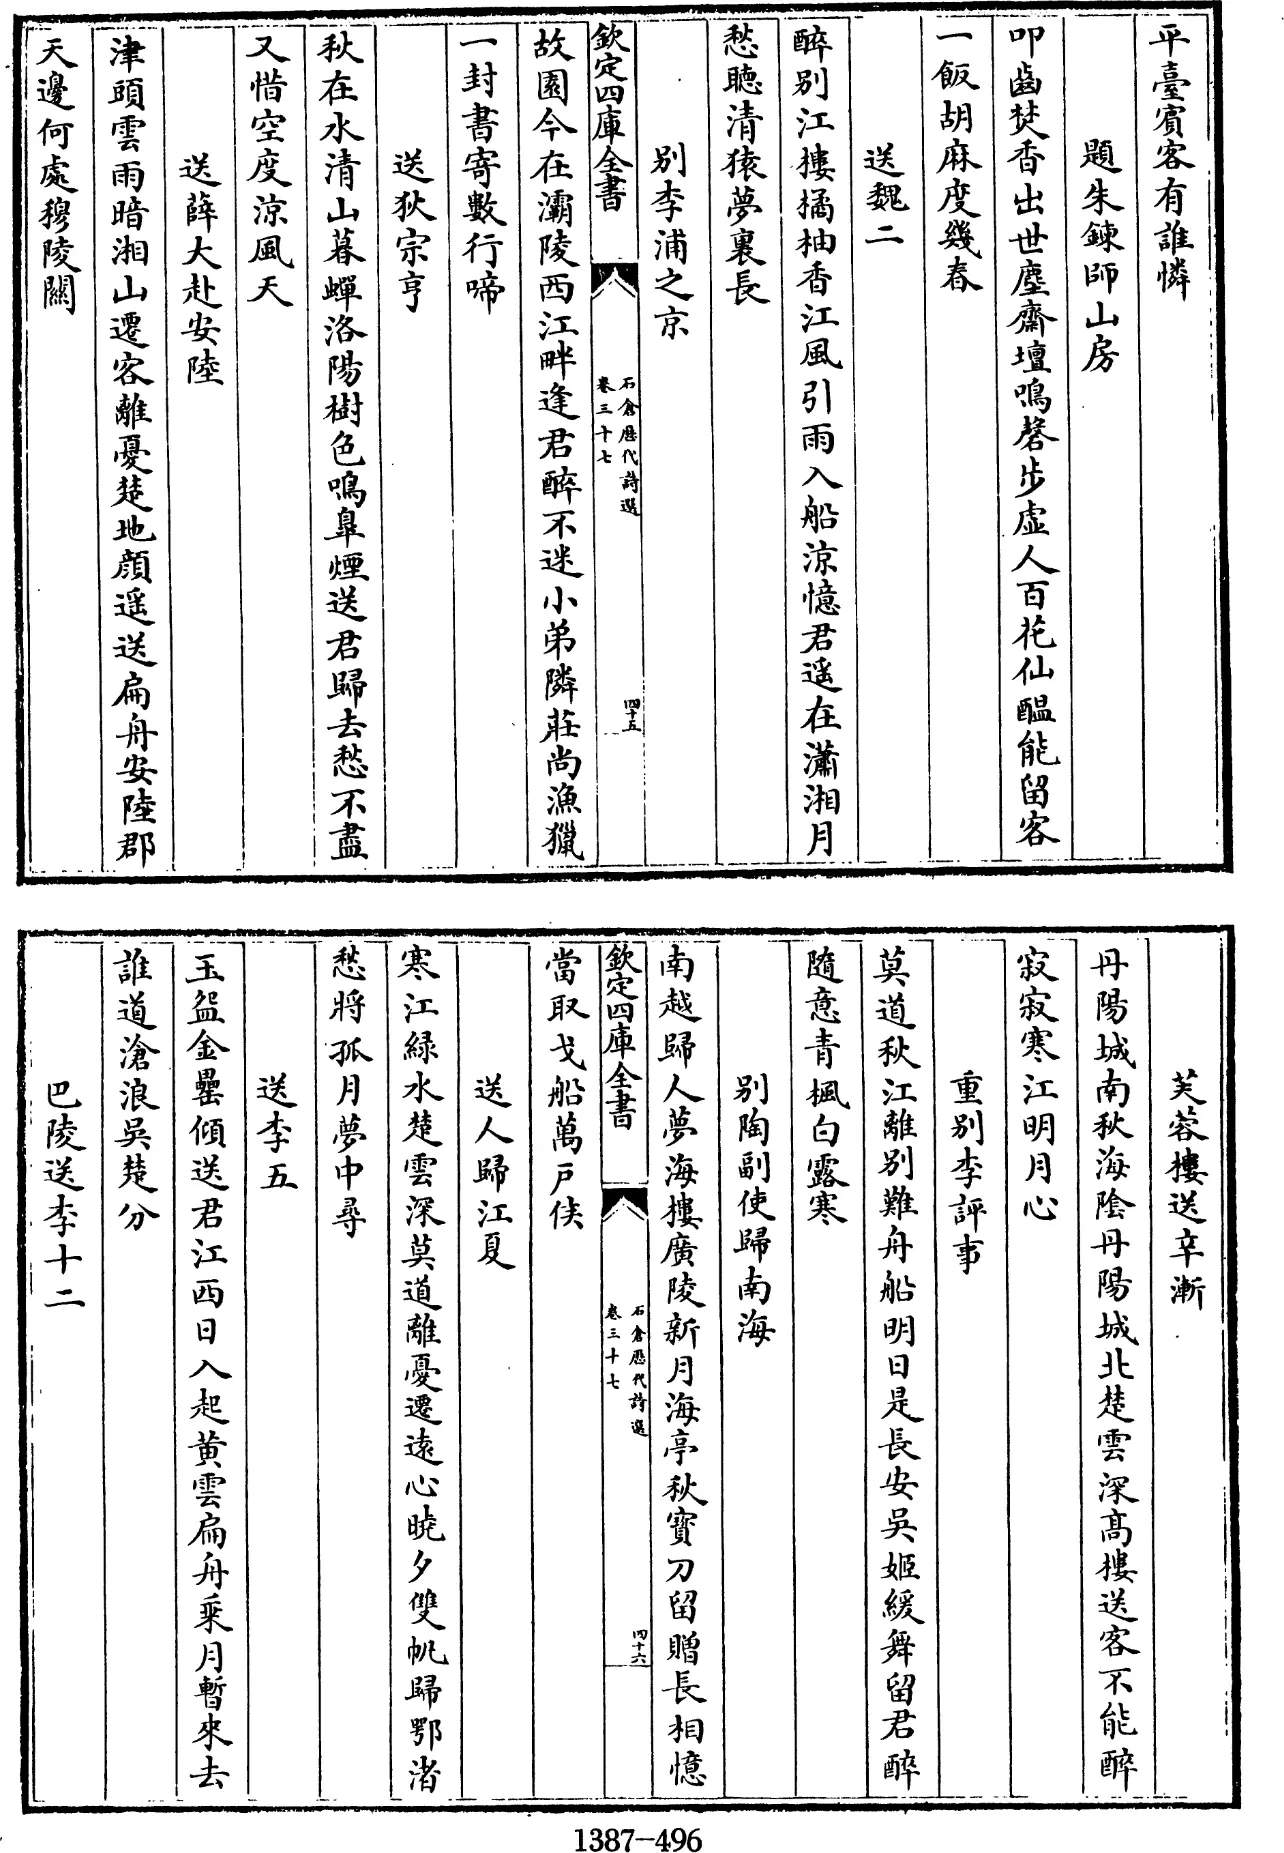 平臺賓客有誰憐
題朱鍊師山房
叩齒焚香出世塵齋壇鳴磬步虛人百花仙醖能留客
一飯胡麻度幾春
送魏二
醉别江樓橘柚香江風引雨入船涼憶君遥在瀟湘月
愁聽清猿夢裏長
别李浦之京
欽定四庫全書
石倉歷代詩選
卷三十七
四十五
故園今在灞陵西江畔逢君醉不迷小弟隣莊尚漁獵
一封書寄數行啼
送狄宗亨
秋在水清山暮蟬洛陽樹色鳴臯煙送君歸去愁不盡
又惜空度涼風天
送薛大赴安陸
津頭雲雨暗湘山遷客離憂楚地顔遥送扁舟安陸郡
天邊何處穆陵關
芙蓉樓送辛漸
丹陽城南秋海陰丹陽城北楚雲深髙樓送客不能醉
寂寂寒江明月心
重别李評事
莫道秋江離别難舟船明日是長安吳姬緩舞留君醉
隨意青楓白露寒
别陶副使歸南海
南越歸人夢海樓廣陵新月海亭秋寳刀留贈長相憶
欽定四庫全書
石倉歷代詩選
卷三十七
四十六
當取戈船萬戸侯
送人歸江夏
寒江緑水楚雲深莫道離憂遷遠心曉夕雙帆歸鄂渚
愁將孤月夢中尋
送李五
玉盌金罍傾送君江西日入起黄雲扁舟乘月暫來去
誰道滄浪吳楚分
巴陵送李十二
1387-496